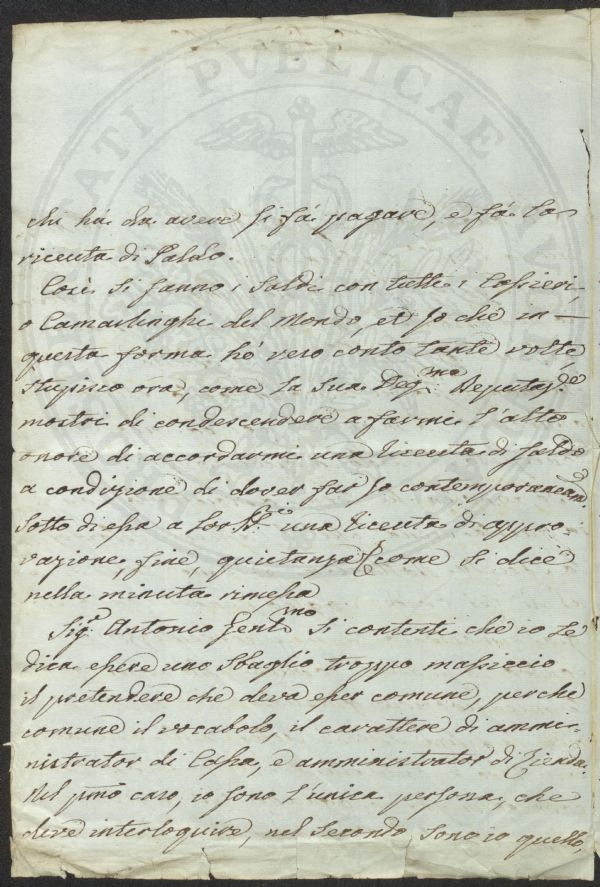 chi há da avere si fá pagare, e fá la
ricevuta di Saldo.
Così si fanno i Saldi con tutti i Cassieri,
o Camarlinghi del Mondo, et Io che in
questa forma hó reso conto tante volte,
stupisco ora, come la Sua Deg.ma Deputaz.e
mostri di condescendere a farmi l'alto
onore di accordarmi una ricevuta di Saldo
a condizione di dover far Io contemporaneam.
sotto di essa a una ricevuta di appro-
vazione, fine, quietanza come si dice
nella minuta rimessa
Sig.r Antonio Gent.mo Si contenti che io Le
dica essere uno Sbaglio troppo massiccio
il pretendere che deva esser comune, perche
comune il vocabolo, il carattere di ammi-
nistrator di Cassa, e amministrator di Azienda.
Nel pmo caso, io sono l'unica persona, che
deve interloquire, nel Secondo, sono io quello,
PVBLICAE